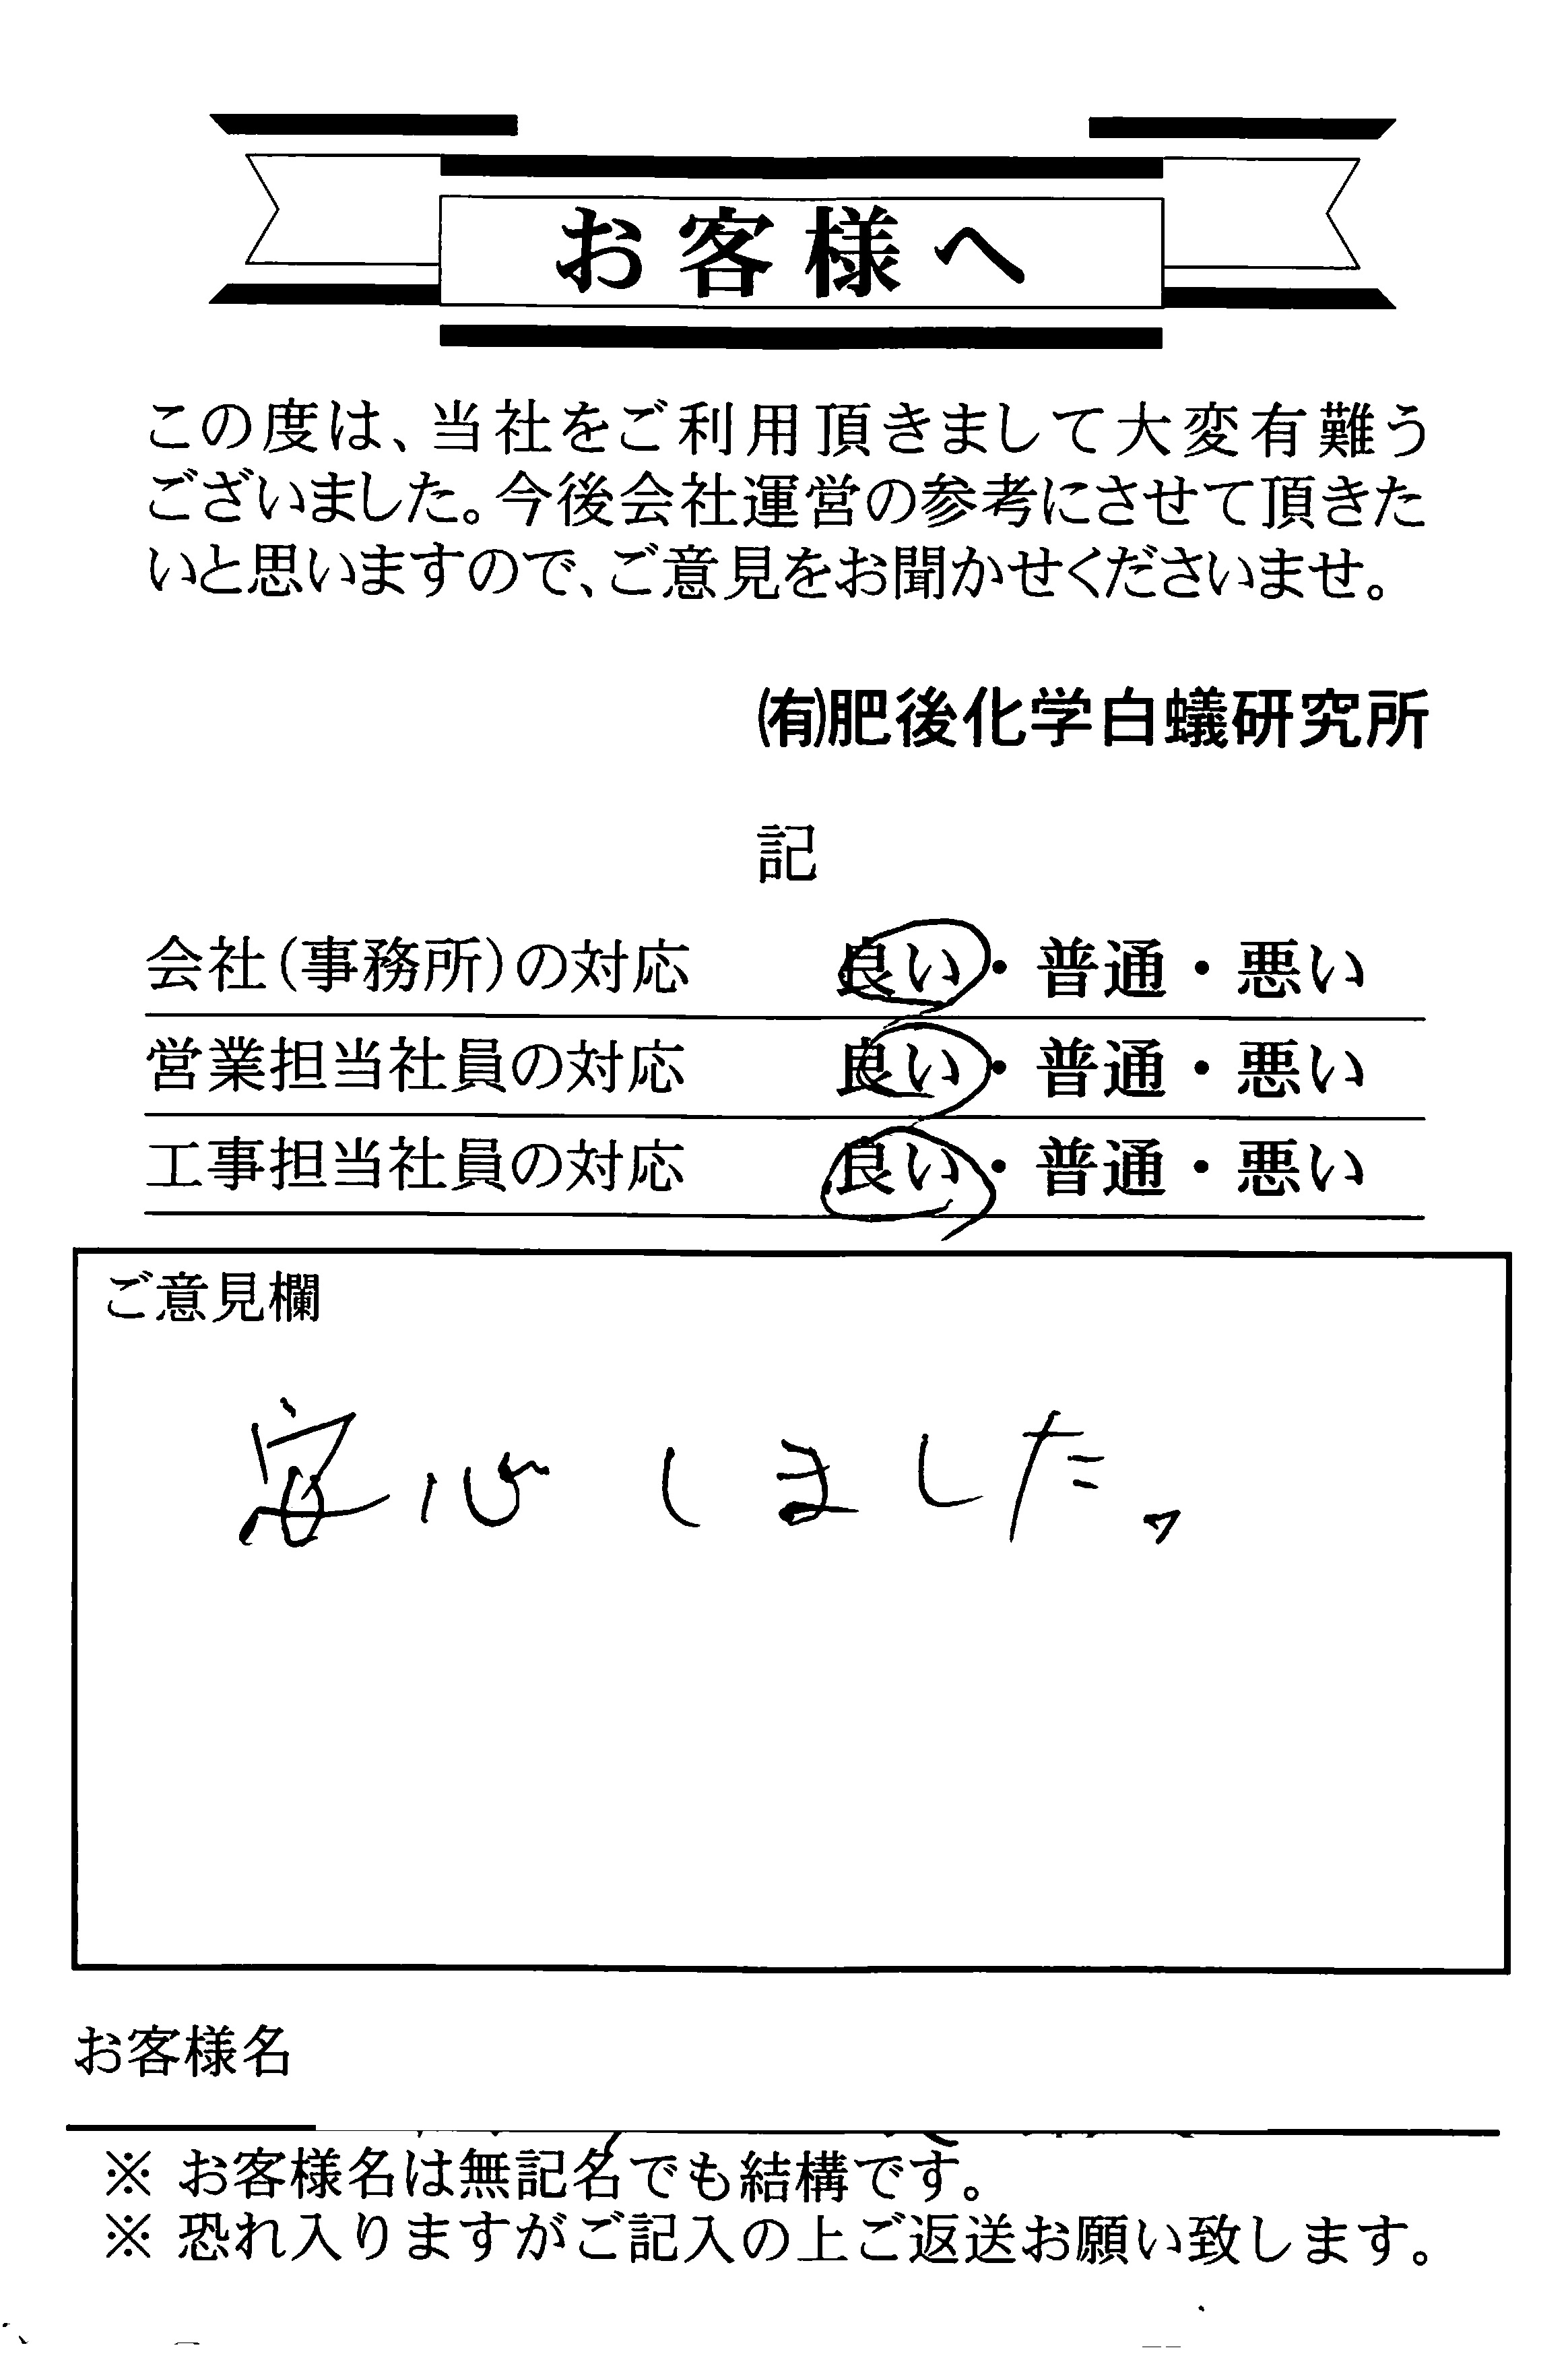 お客様へ
この度は、当社をご利用頂きまして大変有難う
ございました。今後会社運営の参考にさせて頂きた
いと思いますので、ご意見をお聞かせくださいませ。
㈲肥後化学白蟻研究所
記
会社(事務所)の対応 良い・普通・悪い
営業担当社員の対応 良い・普通・悪い
工事担当社員の対応 良い・普通・悪い
ご意見欄
安心しました。
お客様名
※ お客様名は無記名でも結構です。
※ 恐れ入りますがご記入の上ご返送お願い致します。